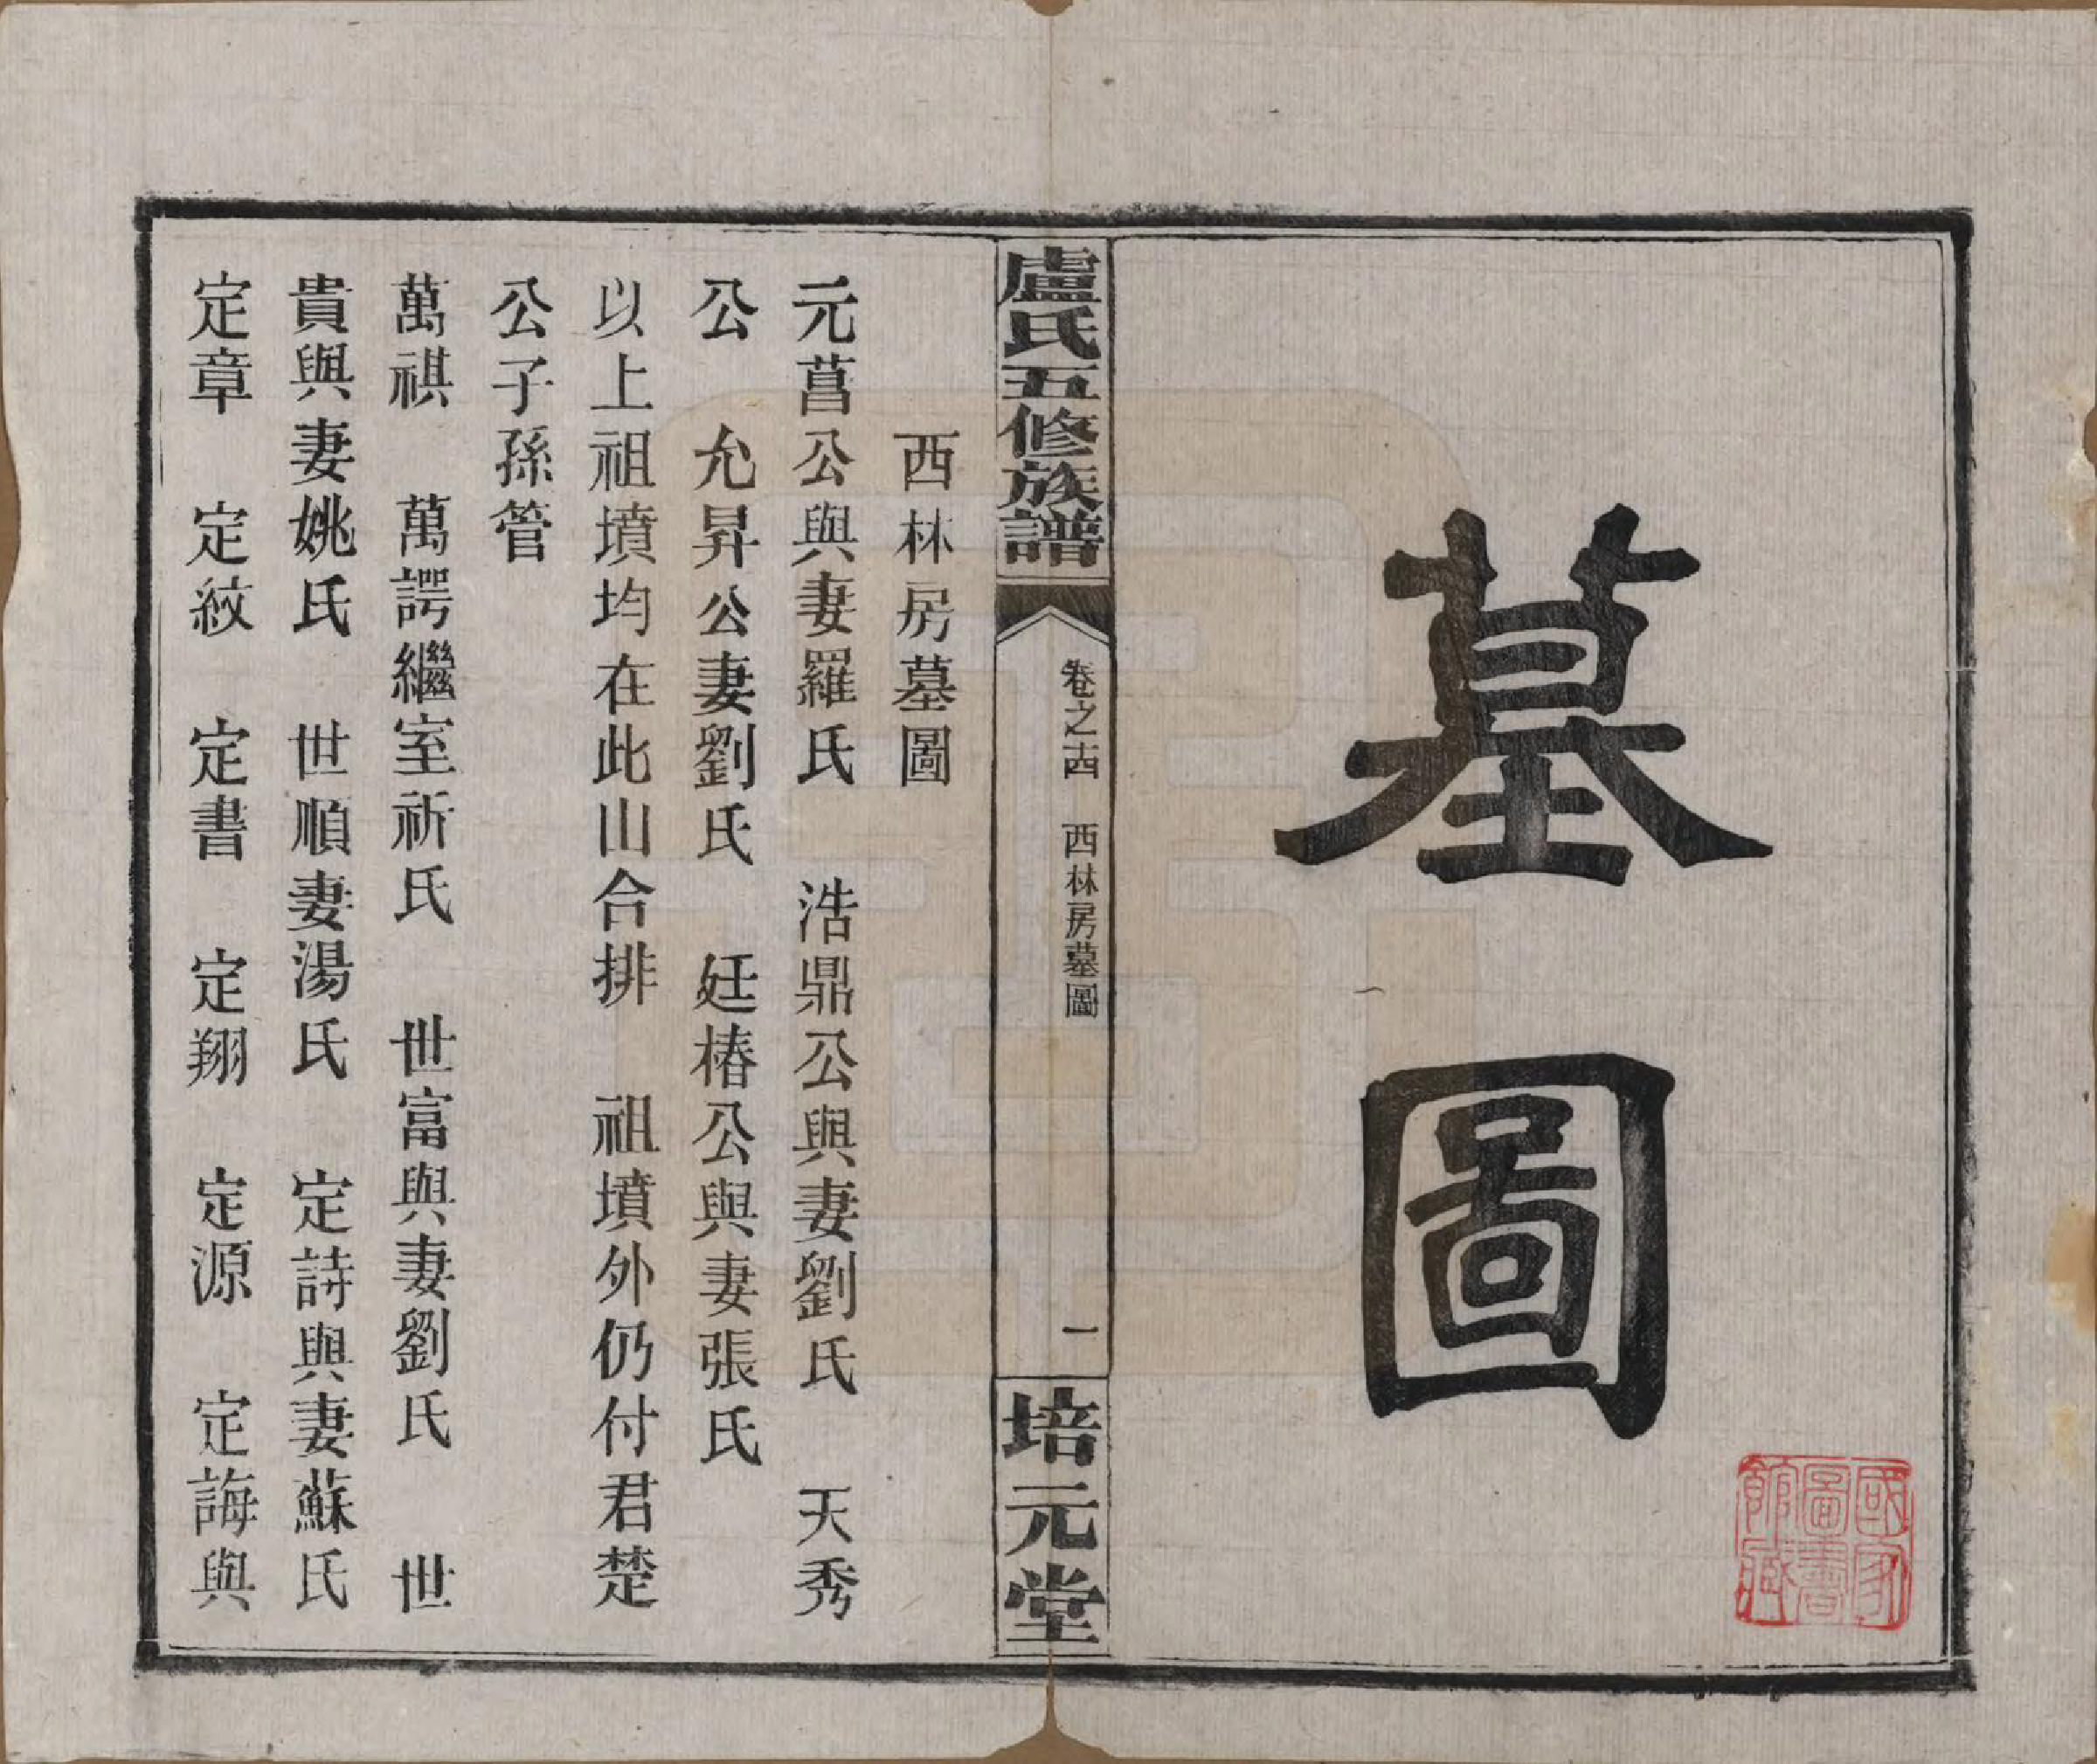 墓圖
國家圖書館藏
盧氏五修族譜
卷之十四 西林房墓圖
一
培元堂
西林房墓圖
元菖公與妻羅氏 浩鼎公與妻劉氏 天秀
公 允昇公妻劉氏 廷椿公與妻張氏
以上祖墳均在此山合排 祖墳外仍付君楚
公子孫管
萬祺 萬諤繼室祈氏 世富與妻劉氏 世
貴與妻姚氏 世順妻湯氏 定詩與妻蘇氏
定章 定紋 定書 定翔 定源 定誨與